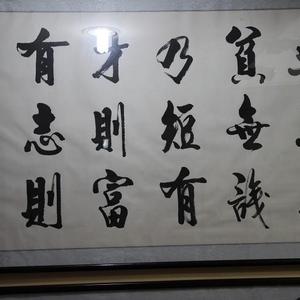 貧無識
乃短有
才則富
有志則